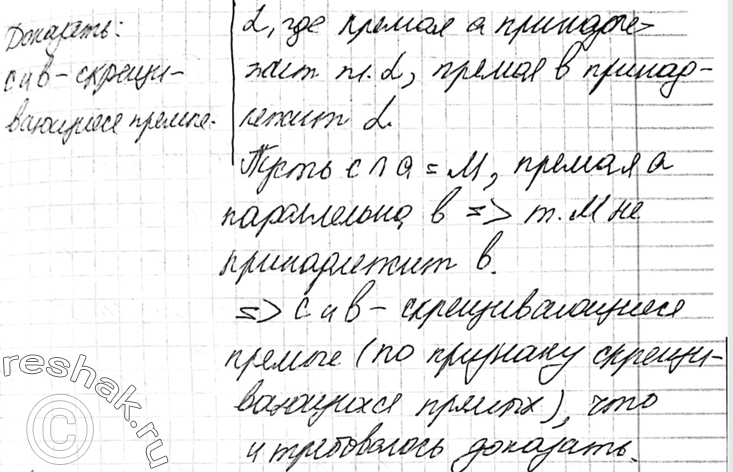 Доказать:
с и в - скрещи-
вающиеся прямые.
α, где прямая а принадле-
жит пл. α, прямая в принад-
лежит α.
Пусть с ∩ а = М, прямая а
параллельна в => т. М не
принадлежит в.
=> с и в - скрещивающиеся
прямые (по признаку скрещи-
вающихся прямых), что
и требовалось доказать.
reshak.ru
©